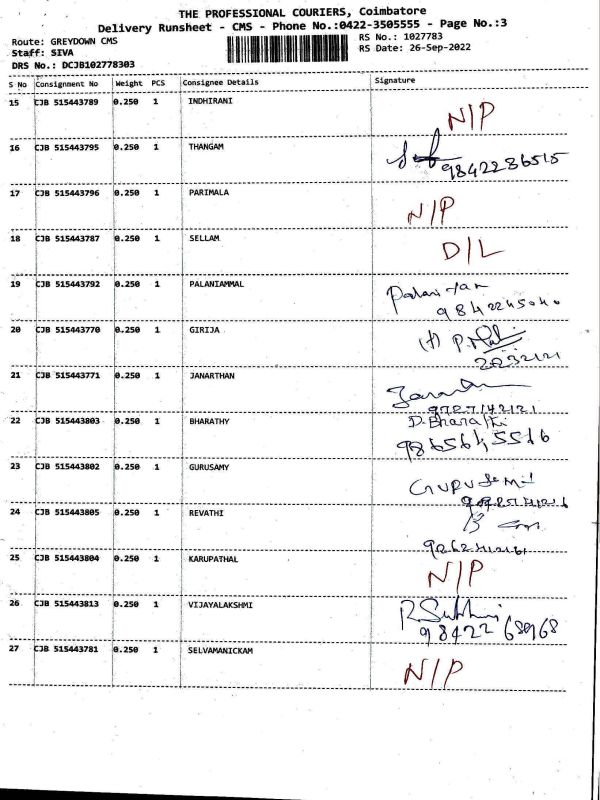 THE PROFESSIONAL COURIERS, Coimbatore
Delivery Runsheet - CMS - Phone No.:0422-3505555 - Page No.:3
Route: GREYDOWN CMS RS No.: 1027783
Staff: SIVA RS Date: 26-Sep-2022
DRS No.: DCJB102778303
S No Consignment No Weight PCS Consignee Details Signature
15 CJB 515443789 0.250 1 INDHIRANI N/P
16 CJB 515443795 0.250 1 THANGAM
9842286515
17 CJB 515443796 0.250 1 PARIMALA N/P
18 CJB 515443787 0.250 1 SELLAM D/L
19 CJB 515443792 0.250 1 PALANIAMMAL
20 CJB 515443770 0.250 1 GIRIJA
21 CJB 515443771 0.250 1 JANARTHAN
22 CJB 515443803 0.250 1 BHARATHY D.Bharathi
23 CJB 515443802 0.250 1 GURUSAMY
24 CJB 515443805 0.250 1 REVATHI
25 CJB 515443804 0.250 1 KARUPATHAL N/P
26 CJB 515443813 0.250 1 VIJAYALAKSHMI
98422 68968
27 CJB 515443781 0.250 1 SELVAMANICKAM N/P